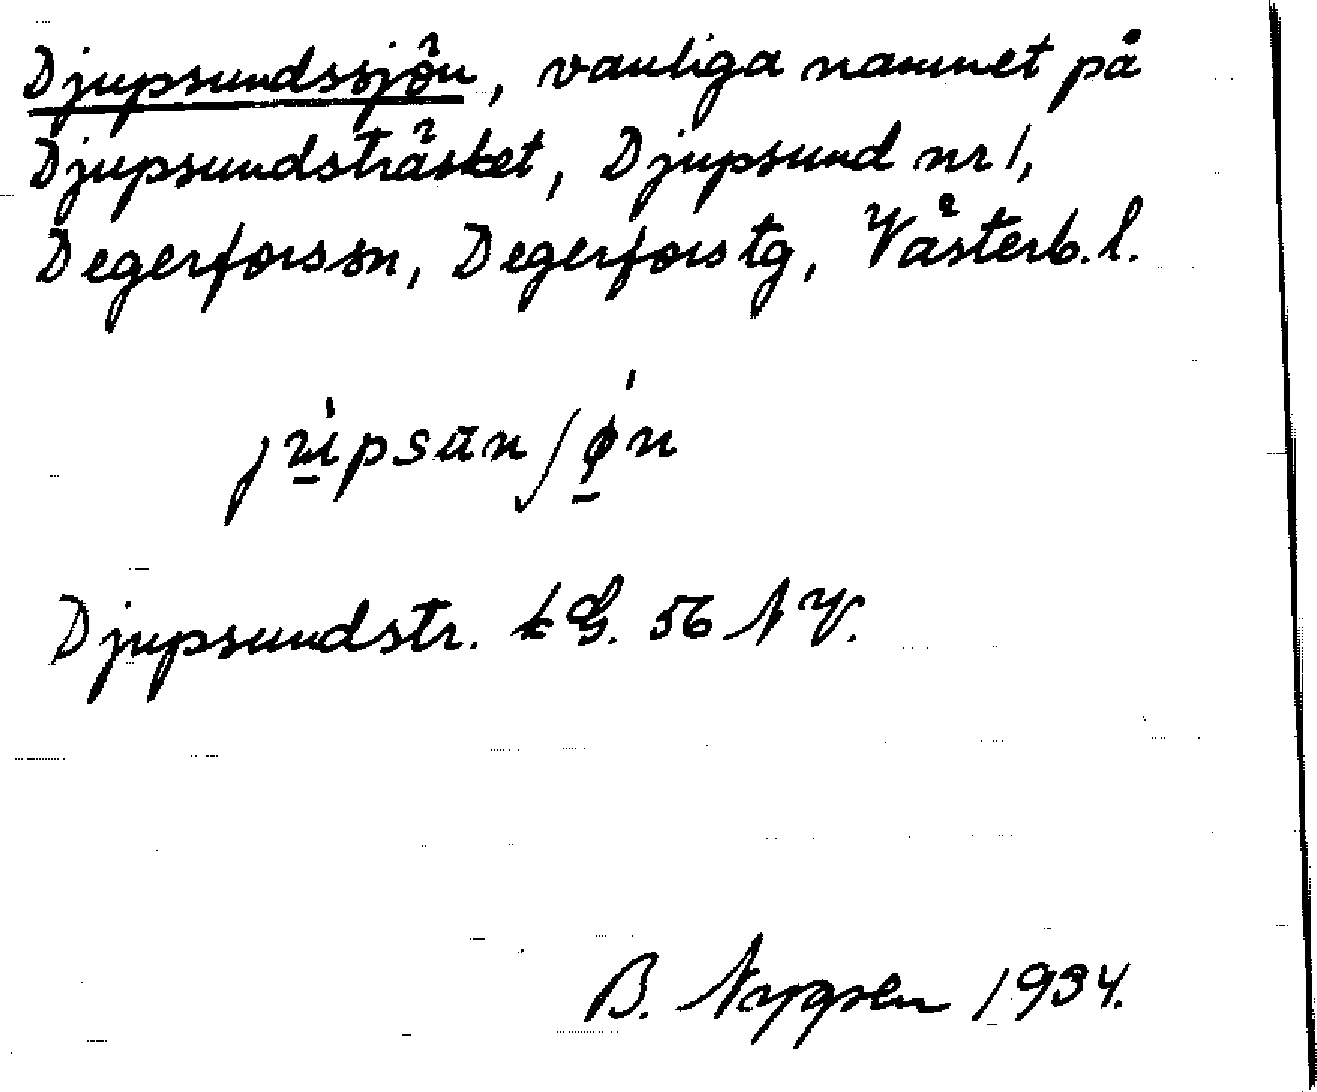 Djupsundssjön, vanliga namnet på
Djupsundsträsket, Djupsund nr 1,
Degerfors sn, Degerfors tg, Västerb. l.
Djupsundstr. 56 NV.
B. 1934.